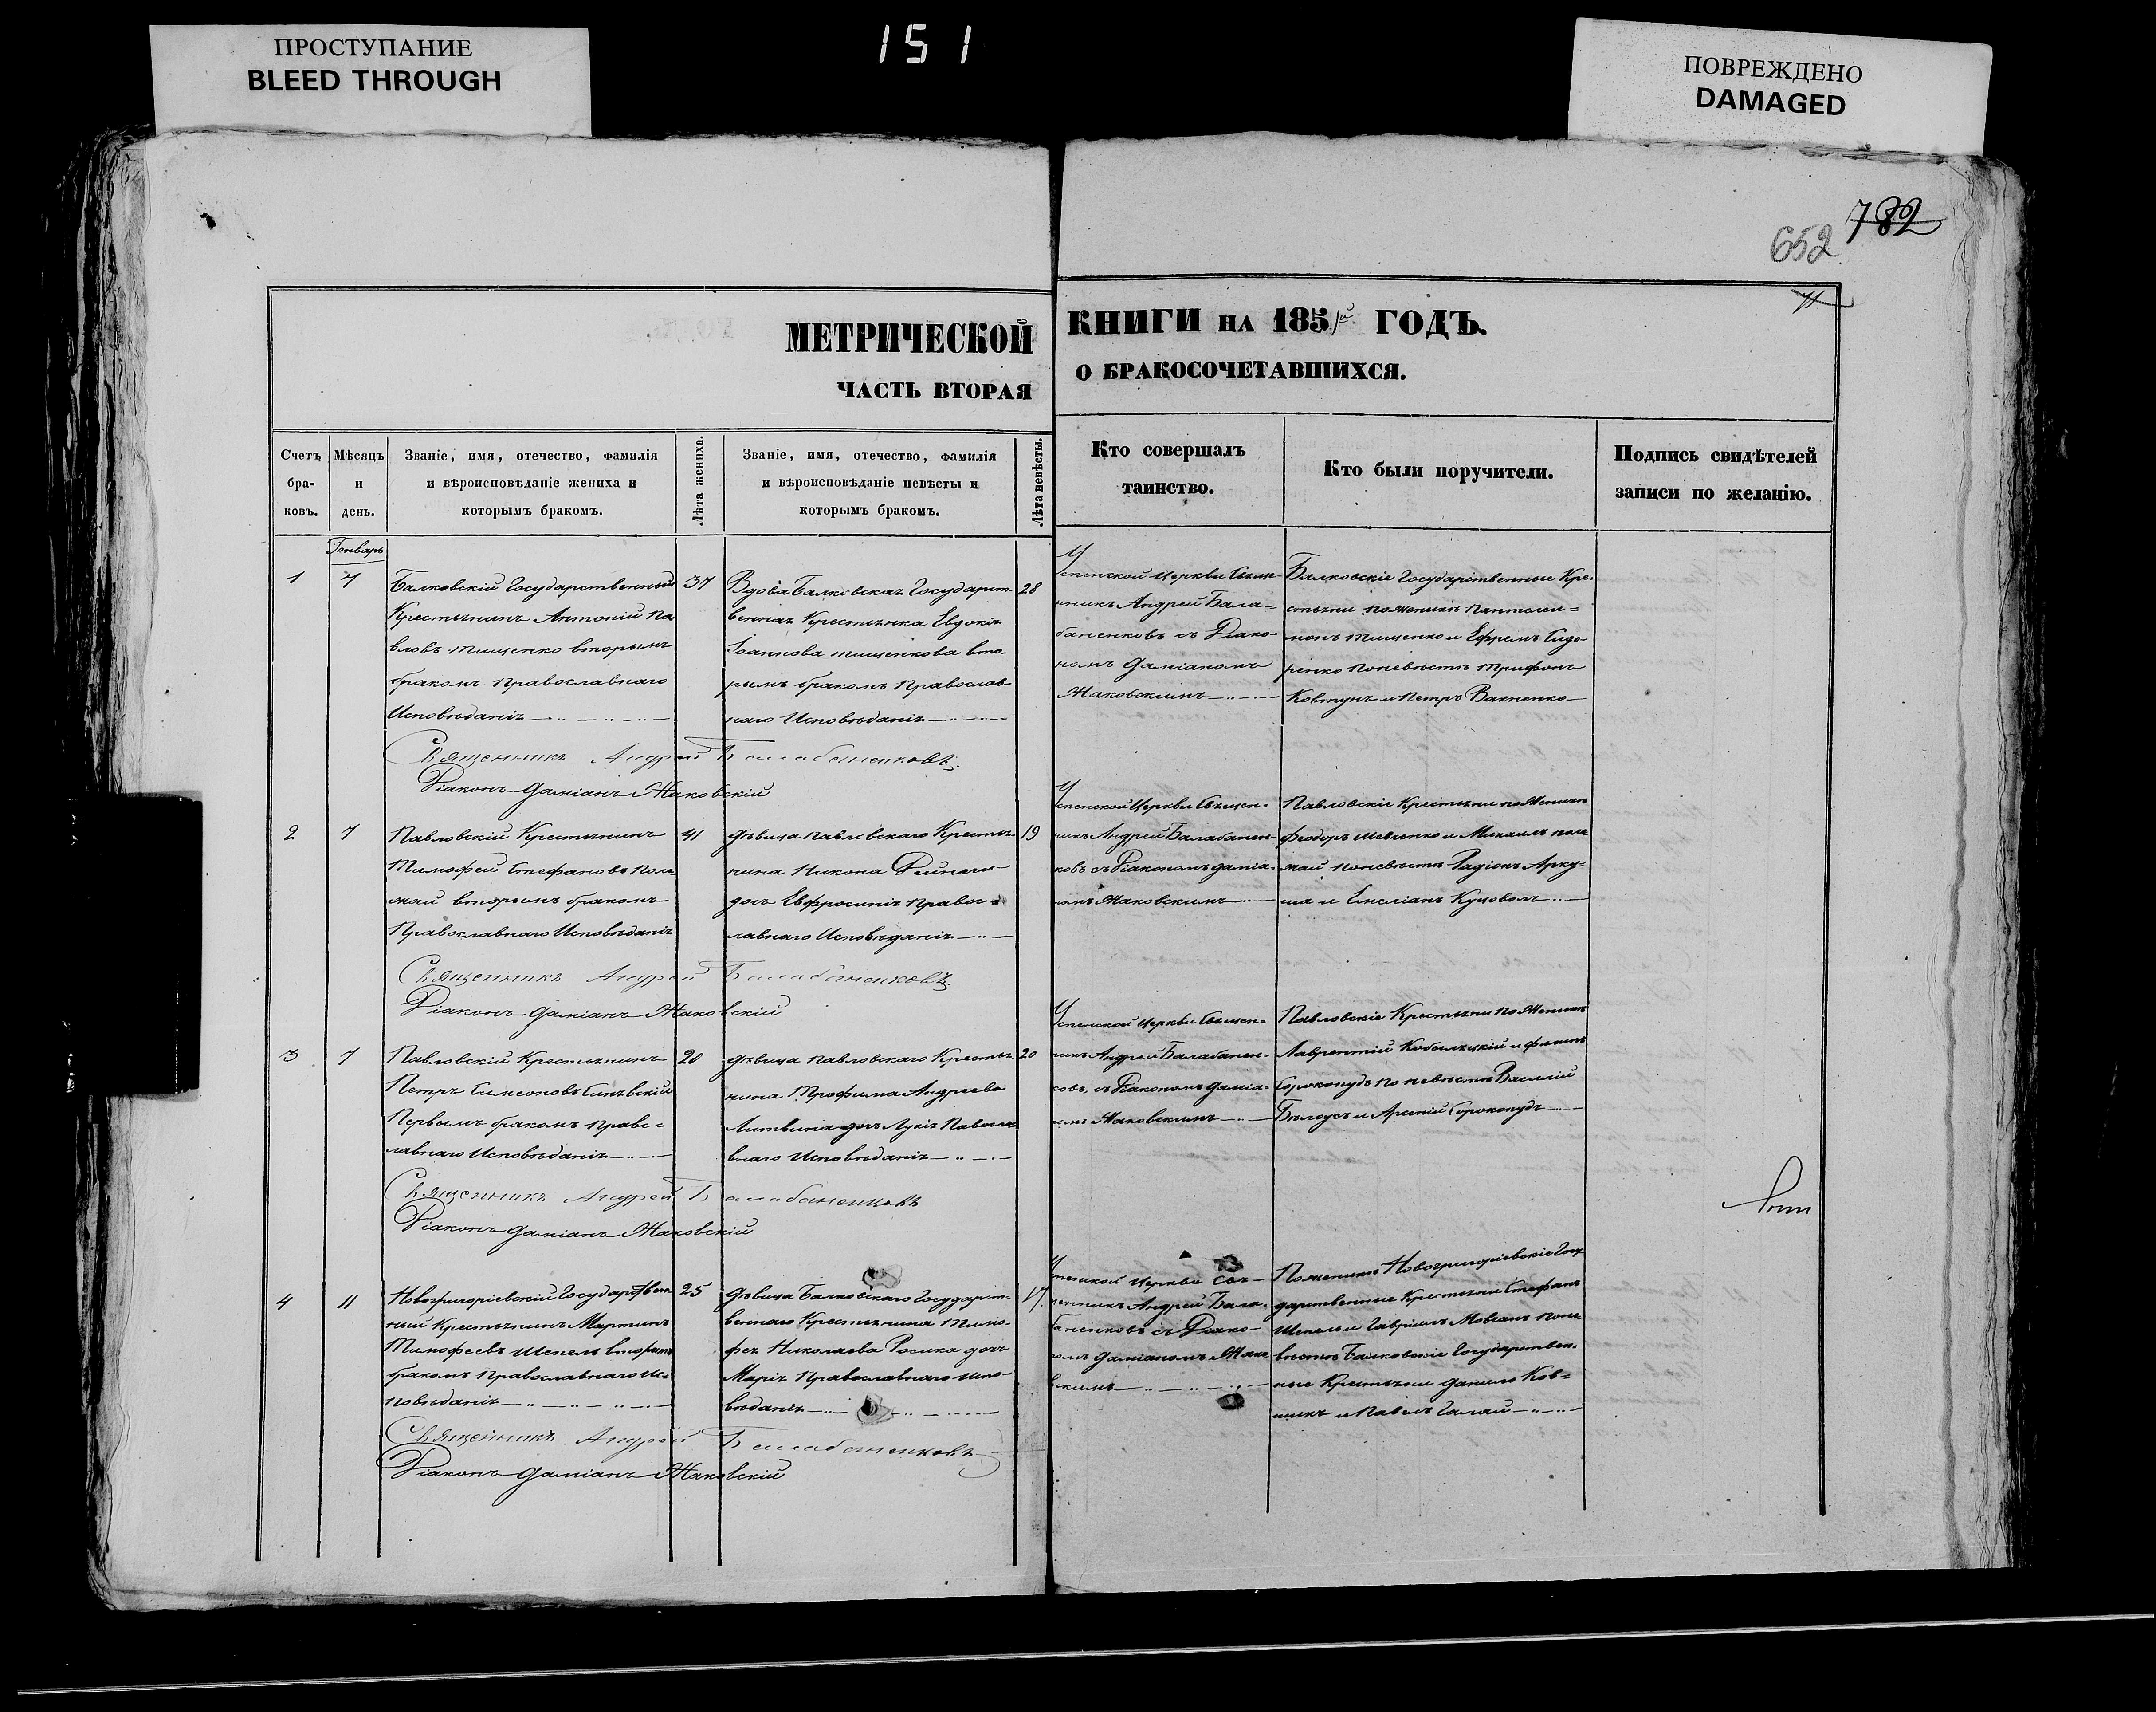 ПРОСТУПАНИЕ
BLEED THROUGH
151
ПОВРЕЖДЕНО
DAMAGED
652
МЕТРИЧЕСКОЙ КНИГИ НА 1851й ГОДЪ.
ЧАСТЬ ВТОРАЯ О БРАКОСОЧЕТАВШИХСЯ.
Счетъ
бра-
ковъ.
Мѣсяцъ
и
день.
Званіе, имя, отечество, фамилія
и вѣроисповѣданіе жениха и
которымъ бракомъ.
Лѣта жениха.
Званіе, имя, отечество, фамилія
и вѣроисповѣданіе невѣсты и
которымъ бракомъ.
Лѣта невѣсты.
Кто совершалъ
таинство.
Кто были поручители.
Подпись свидѣтелей
записи по желанію.
Генварь
1
7
Балковскій Государственный
Крестьянинъ Антоній Па
вловъ Тищенко вторымъ
бракомъ Православнаго
Исповѣданія
37
Вдова Балковская Государст-
венная Крестьянка Евдокія
Іоаннова Тищенкова вто-
рымъ бракомъ Православ
наго Исповѣданія
28
Успенской Церкви Священ-
никъ Андрей Бала=
баненковъ съ Діако-
номъ Даміаномъ
Жаковскимъ
Балковскіе Государственные Кре-
стьяни по женихѣ Пантелеи=
монъ Тищенко и Ефремъ Сидо
ренко по невѣстѣ Трифонъ
Ковтунъ и Петръ Вахненко
Священникъ Андрей Балабаненковъ.
Діаконъ Даміанъ Жаковскій
2
7
Павловскій Крестьянинъ
Тимофей Стефановъ Пола
май вторымъ бракомъ
Православнаго Исповѣданія
41
Дѣвица Павловскаго Крестья-
нина Никона
дочь Евфросинія Правос=
лавнаго Исповѣданія
19
Успенской Церкви Священ-
никъ Андрей Балабанен-
ковъ съ Діакономъ Даміа-
номъ Жаковскимъ
Павловскіе Крестьяни по Женихѣ
Феодоръ Шевченко и Михаилъ Пола
май по невѣстѣ Радіонъ Арку=
ша и Емеліанъ
Священникъ Андрей Балабаненковъ.
Діаконъ Даміанъ Жаковскій
3
7
Павловскій Крестьянинъ
Петръ Симеоновъ Синявскій
Первымъ бракомъ Правос=
лавнаго Исповѣданія
20
Дѣвица Павловскаго Крестья
нина Трофима Андреева
Литвина дочь Лукія Павосла
внаго Исповѣданія
20
Успенской Церкви Священ-
никъ Андрей Балабанен-
ковъ съ Діакономъ Даміа-
номъ Жаковскимъ
Павловскіе Крестьяни по Женихѣ
Лаврентій Кобыляцкій и Филипъ
Сорокопудъ по невѣстѣ Василій
Бѣлоусъ и Арсеній Сорокопудъ
Священникъ Андрей Балабаненковъ
Діаконъ Даміанъ Жаковскій
4
11
Новогригоріевскій Государствен
ный Крестьянинъ Мартинъ
Тимофеевъ Шепель вторымъ
бракомъ Православнаго Ис=
повѣданія
25
Дѣвица Балковскаго Государст-
веннаго Крестьянина Тимо-
фея Николаева Росика дочь
Марія Православнаго Испо-
вѣданія
17
Успенской Церкви Свя-
щенникъ Андрей Бала-
баненковъ съ Діако-
номъ Даміаномъ Жако
вскимъ
По женихѣ Новогригоріевскіе Госу
дарственные Крестьяни Стефанъ
Шепель и Гавріилъ Мовчанъ по не
вѣстѣ Балковскіе Государствен-
ные Крестьяни Данило Ков=
шикъ и Павелъ Галай
Священникъ Андрей Балабаненковъ
Діаконъ Даміанъ Жаковскій